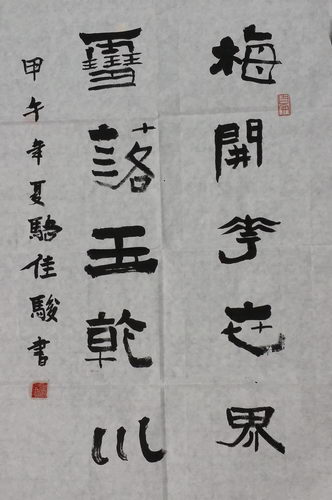 梅開花世界
雪落玉乾川
甲午年夏駱佳駿書